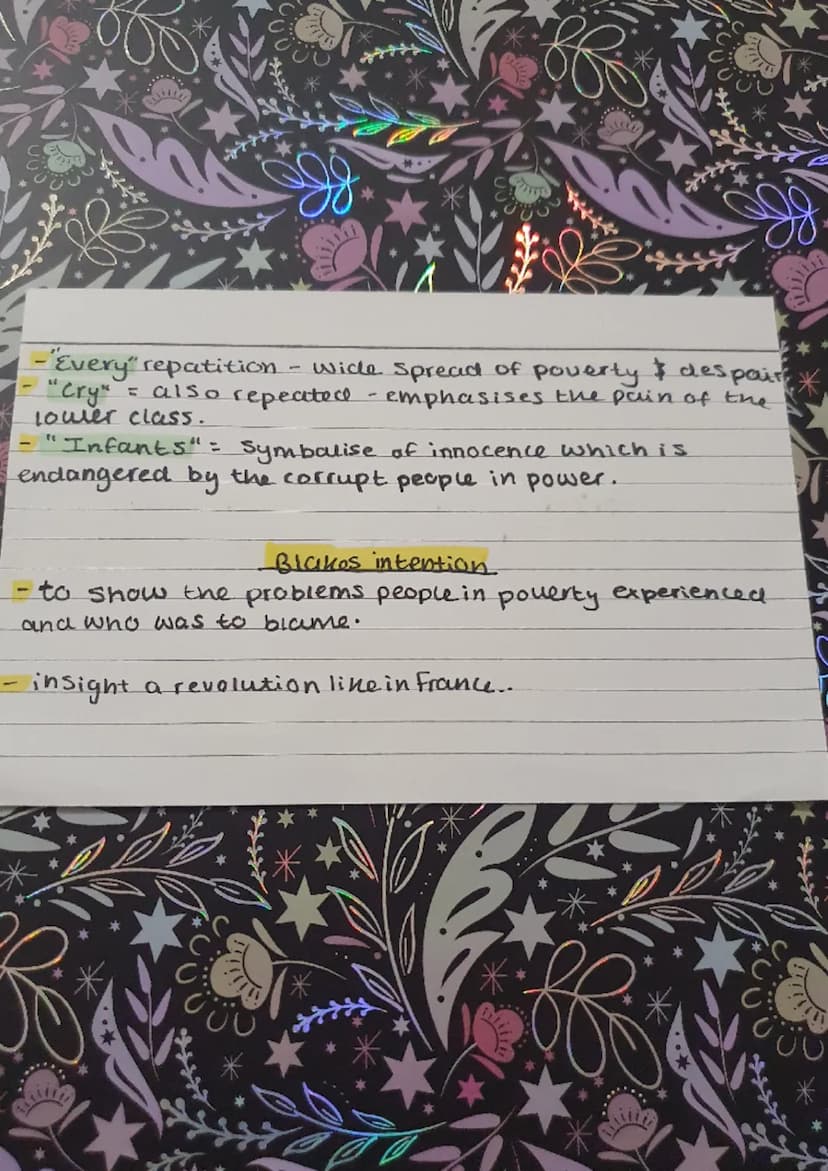 - "Every" repatition - wide spread of poverty & despair
- "Cry" = also repeated - emphasises the pain of the
lower class.
- "Infants" = Symbalise of innocence which is
endangered by the corrupt people in power.
Blakes intention
- to show the problems people in poverty experienced
and who was to blame.
- insight a revolution like in France..